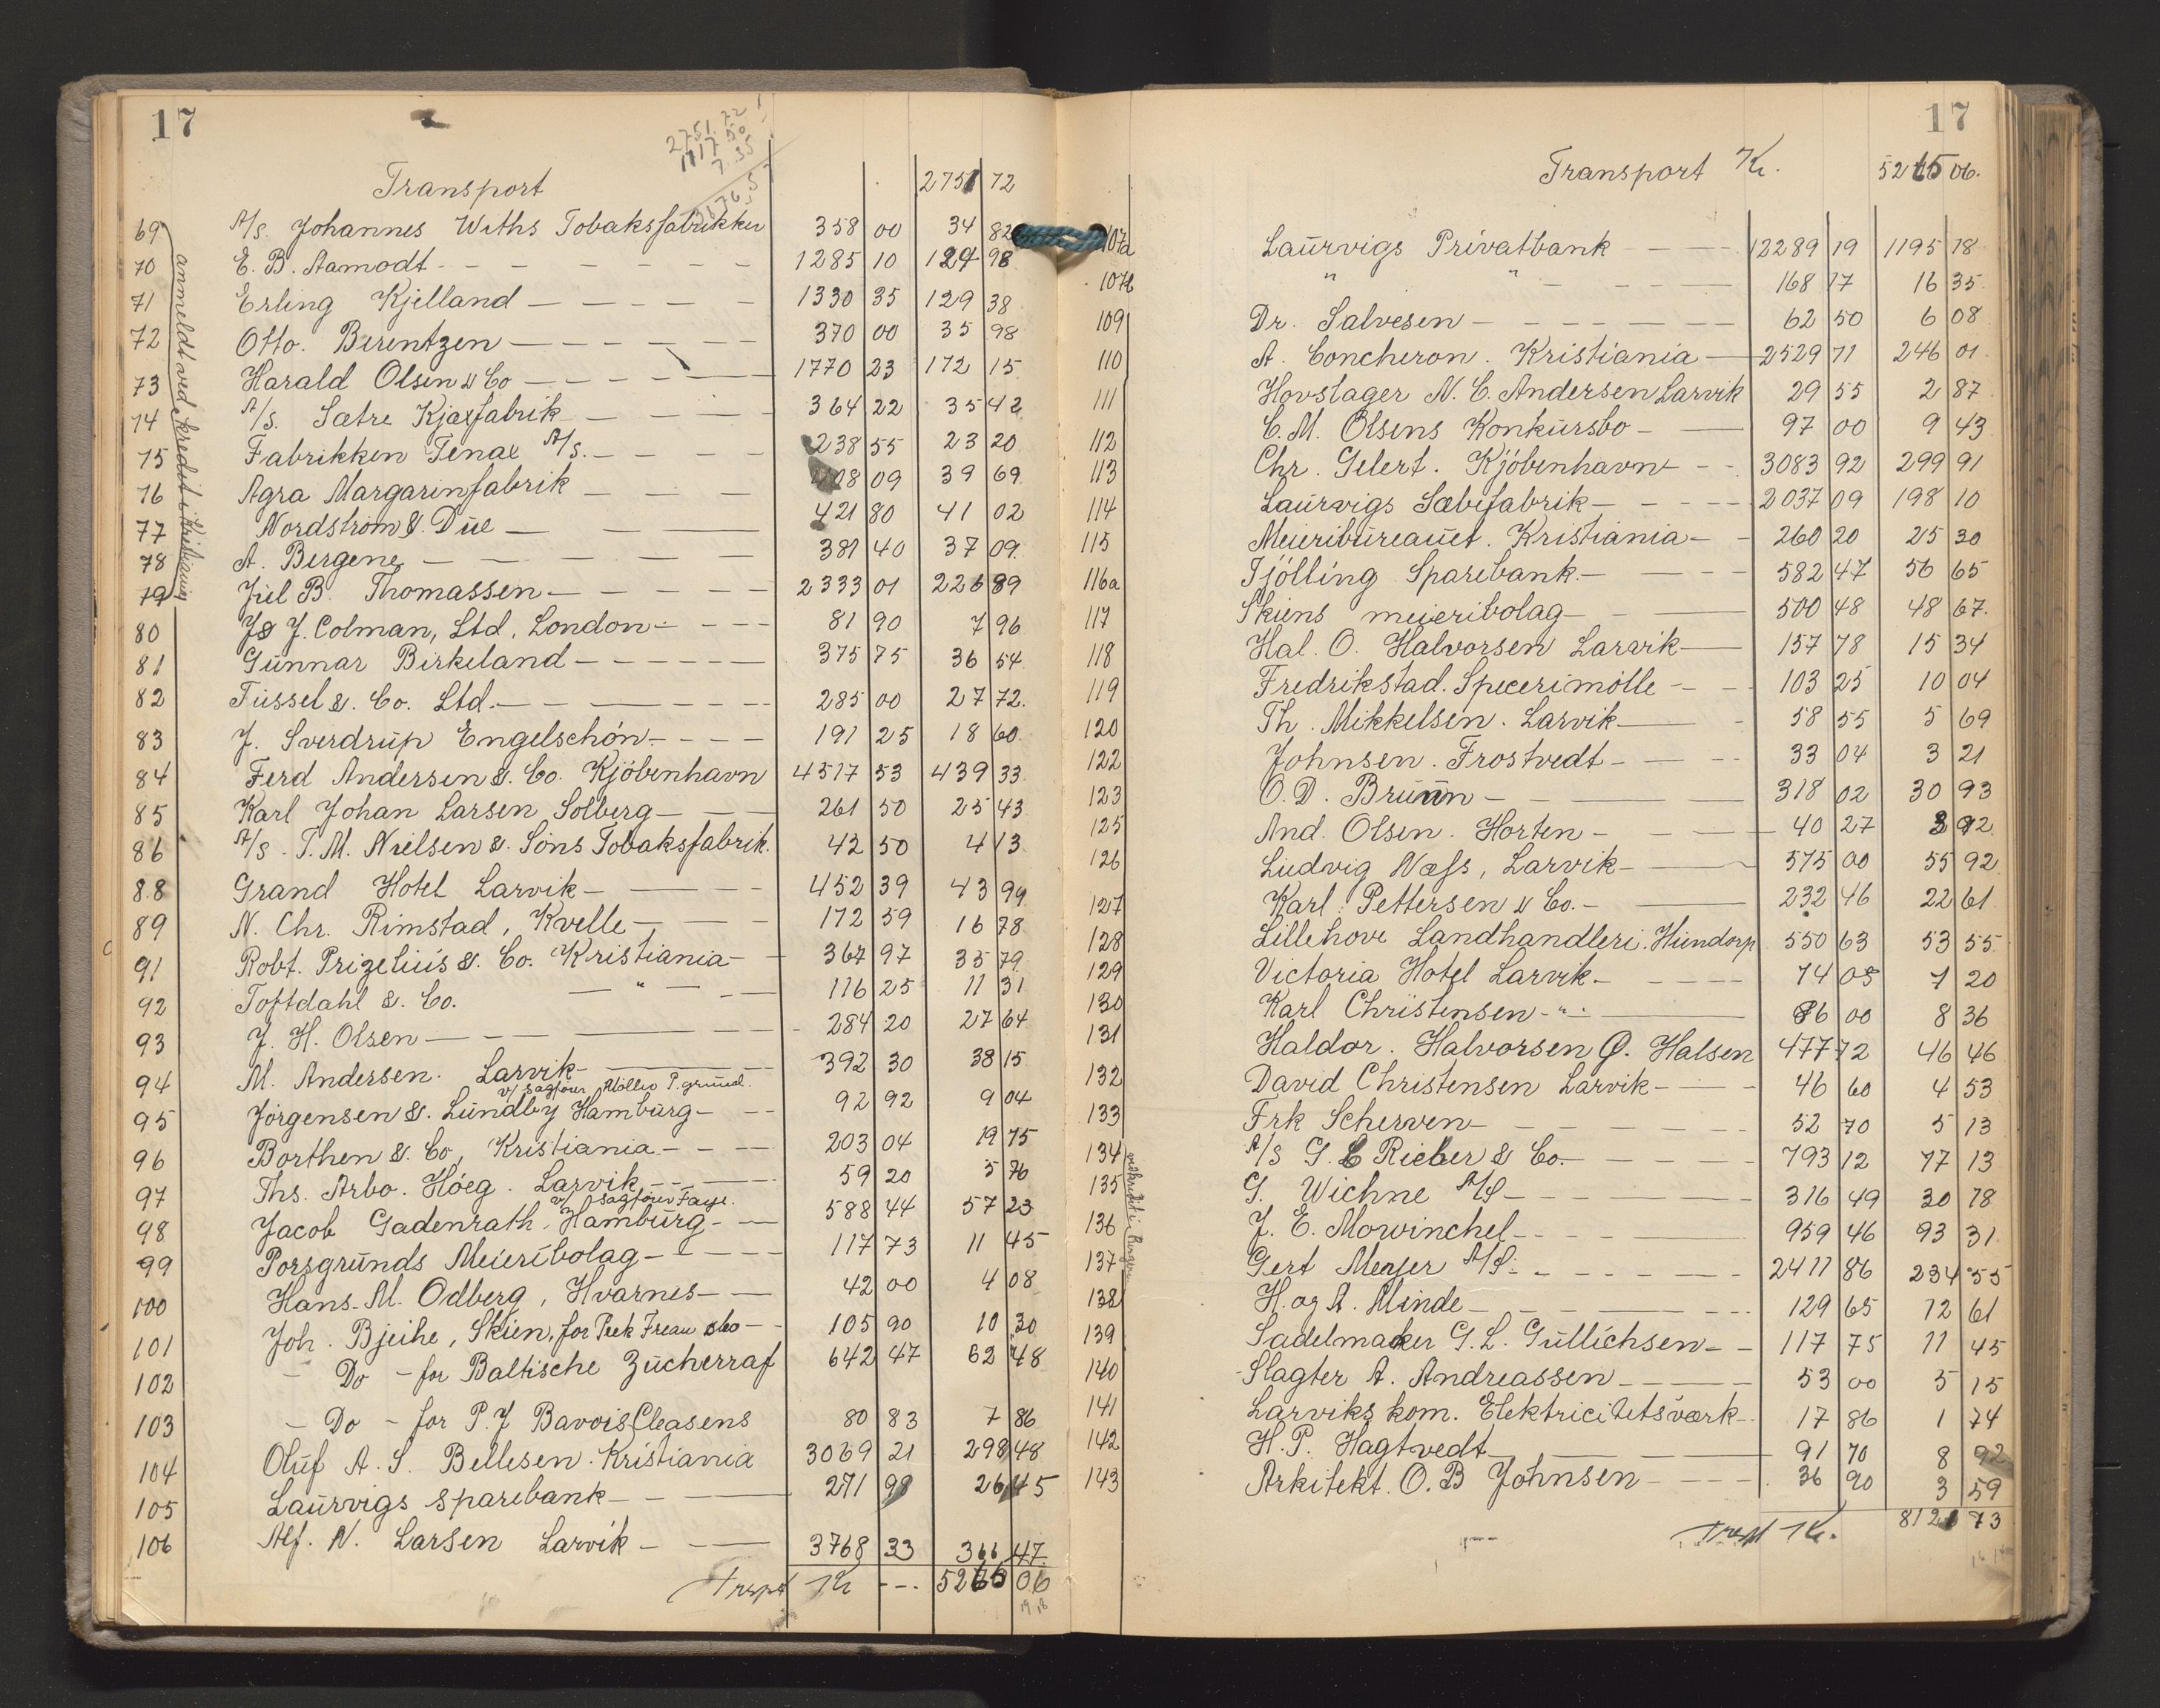 17
2751.72
1117.50
7.35
Transport 2751 72
69 A/S. Johannes Withs Tobaksfabrikker 358 00 34 82
70 E. B. Aamodt 1285 10 124 98
71 Erling Kjelland 1330 35 129 38
72 Otto. Berentzen 370 00 35 98
73 Harald Olsen & Co 1770 23 172 15
74 A/S. Sætre Kjæxfabrik 364 22 35 42
75 Fabrikken Tenax A/S. 238 55 23 20
76 Agra Margarinfabrik 408 09 39 69
77 Nordstrøm & Due 421 80 41 02
78 A. Bergene 381 40 37 09
79 Juel B. Thomassen 2333 01 226 89
anmeldt ved kredit i Kristiania
80 J & J. Colman, Ltd, London 81 90 7 96
81 Gunnar Birkeland 375 75 36 54
82 Tussel & Co. Ltd. 285 00 27 72
83 J. Sverdrup Engelschön 191 25 18 60
84 Ferd Andersen & Co. Kjöbenhavn 4517 53 439 33
85 Karl Johan Larsen Solberg 261 50 25 43
86 A/S. T. M. Nielsen & Söns Tobaksfabrik. 42 50 4 13
88 Grand Hotel Larvik 452 39 43 99
89 N. Chr. Rimstad, Kvelle 172 59 16 78
91 Robt. Prizelius & Co. Kristiania 367 97 35 79
92 Toftdahl & Co. — " — 116 25 11 31
93 J. H. Olsen 284 20 27 64
94 M. Andersen. Larvik 392 30 38 15
v/ sagförer Möller P.grund.
95 Jörgensen & Lundby Hamburg 92 92 9 04
96 Borthen & Co, Kristiania 203 04 19 75
97 Ths. Arbo. Höeg. Larvik 59 20 5 76
v/ sagförer Faye.
98 Jacob Gadenrath, Hamburg 588 44 57 23
99 Porsgrunds Meieribolag 117 73 11 45
100 Hans M. Odberg, Hvarnes 42 00 4 08
101 Joh. Bjeihe, Skien, for Peek Frean & Co 105 90 10 30
102 - Do - for Baltische Zucherraf 642 47 62 48
103 - Do - for P. J Bavois Cleasens 80 83 7 86
104 Oluf A. S. Bellesen. Kristiania 3069 21 298 48
105 Laurvigs sparebank 271 98 26 45
106 Alf. N. Larsen Larvik 3768 33 366 47
Trspt Kr 5265 06
17
Transport Kr. 5265 06.
107a Laurvigs Privatbank 12289 19 1195 18
107b " " 168 17 16 35
109 Dr. Salvesen 62 50 6 08
110 A. Concheron. Kristiania 2529 71 246 01
111 Hovslager N. C. Andersen Larvik 29 55 2 87
112 C. M. Olsens Konkursbo 97 00 9 43
113 Chr. Gelert. Kjöbenhavn 3083 92 299 91
114 Laurvigs Sæbefabrik 2037 09 198 10
115 Meieribureauet. Kristiania 260 20 25 30
116a Tjölling Sparebank. 582 47 56 65
117 Skiens meieribolag 500 48 48 67
118 Hal. O. Halvorsen Larvik 157 78 15 34
119 Fredrikstad. Specerimölle 103 25 10 04
120 Th. Mikkelsen. Larvik 58 55 5 69
122 Johnsen. Frostvedt 33 04 3 21
123 O. D. Bruun 318 02 30 93
125 And. Olsen. Horten 40 27 3 92
126 Ludvig Næss, Larvik 575 00 55 92
127 Karl Pettersen & Co. 232 46 22 61
128 Lillehove Landhandleri. Hundorp 550 63 53 55
129 Victoria Hotel Larvik 74 05 7 20
130 Karl Christensen - " - 86 00 8 36
131 Haldor. Halvorsen Ø. Halsen 477 72 46 46
132 David Christensen Larvik 46 60 4 53
133 Frk Scherven 52 70 5 13
134 A/S G. C Rieber & Co. 793 12 77 13
135 G. Wichne A/S 316 49 30 78
136 J. E. Mowinchel 959 46 93 31
137 Gert Meyer A/S. 2411 86 234 55
138 H. og A. Minde 129 65 12 61
139 Sadelmaker G. L. Gullichsen 117 75 11 45
140 Slagter A. Andreassen 53 00 5 15
141 Larviks kom. Elektricitetsværk 17 86 1 74
142 H. P. Hagtvedt 91 70 8 92
143 Arkitekt. O. B Johnsen 36 90 3 59
Trspt Kr. 8121 73